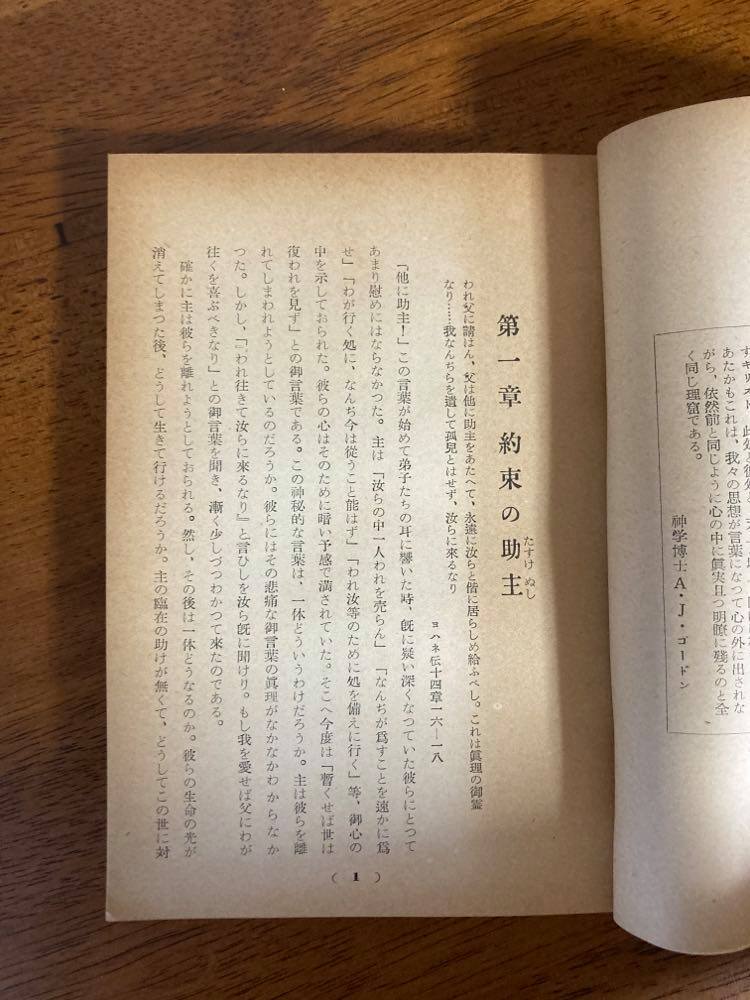 あたかもこれは、我々の思想が言葉になつて心の外に出されな
がら、依然前と同じように心の中に眞実且つ明瞭に残るのと全
く同じ理窟である。
神学博士A・J・ゴードン
第一章 約束の助主
たすけ ぬし
われ父に請はん、父は他に助主をあたへて、永遠に汝らと偕に居らしめ給ふべし。これは眞理の御霊
なり……我なんぢらを遺して孤児とはせず、汝らに來るなり
ヨハネ伝十四章一六―一八
「他に助主!」この言葉が始めて弟子たちの耳に響いた時、既に疑い深くなつていた彼らにとつて
あまり慰めにはならなかつた。主は「汝らの中一人われを売らん」「なんぢが爲すことを速かに爲
せ」「わが行く処に、なんぢ今は從うこと能はず」「われ汝等のために処を備えに行く」等、御心の
中を示しておられた。彼らの心はそのために暗い予感で満されていた。そこへ今度は「暫くせば世は
復われを見ず」との御言葉である。この神秘的な言葉は、一体どういうわけだろうか。主は彼らを離
れてしまわれようとしているのだろうか。彼らにはその悲痛な御言葉の眞理がなかなかわからなか
つた。しかし、「『われ往きて汝らに來るなり』と言ひしを汝ら旣に聞けり。もし我を愛せば父にわが
往くを喜ぶべきなり」との御言葉を聞き、漸く少しづつわかつて来たのである。
確かに主は彼らを離れようとしておられる。然し、その後は一体どうなるのか。彼らの生命の光が
消えてしまつた後、どうして生きて行けるだろうか。主の臨在の助けが無くて、どうしてこの世に対
( 1 )